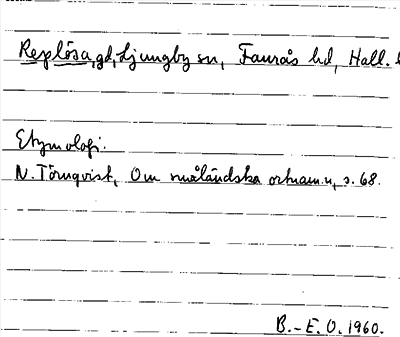 Replösa, gd, Ljungby sn, Faurås hd, Hall. l
Etymologi.
N. Törnqvist, Om småländska ortnamn, s. 68.
B.-E. O. 1960.